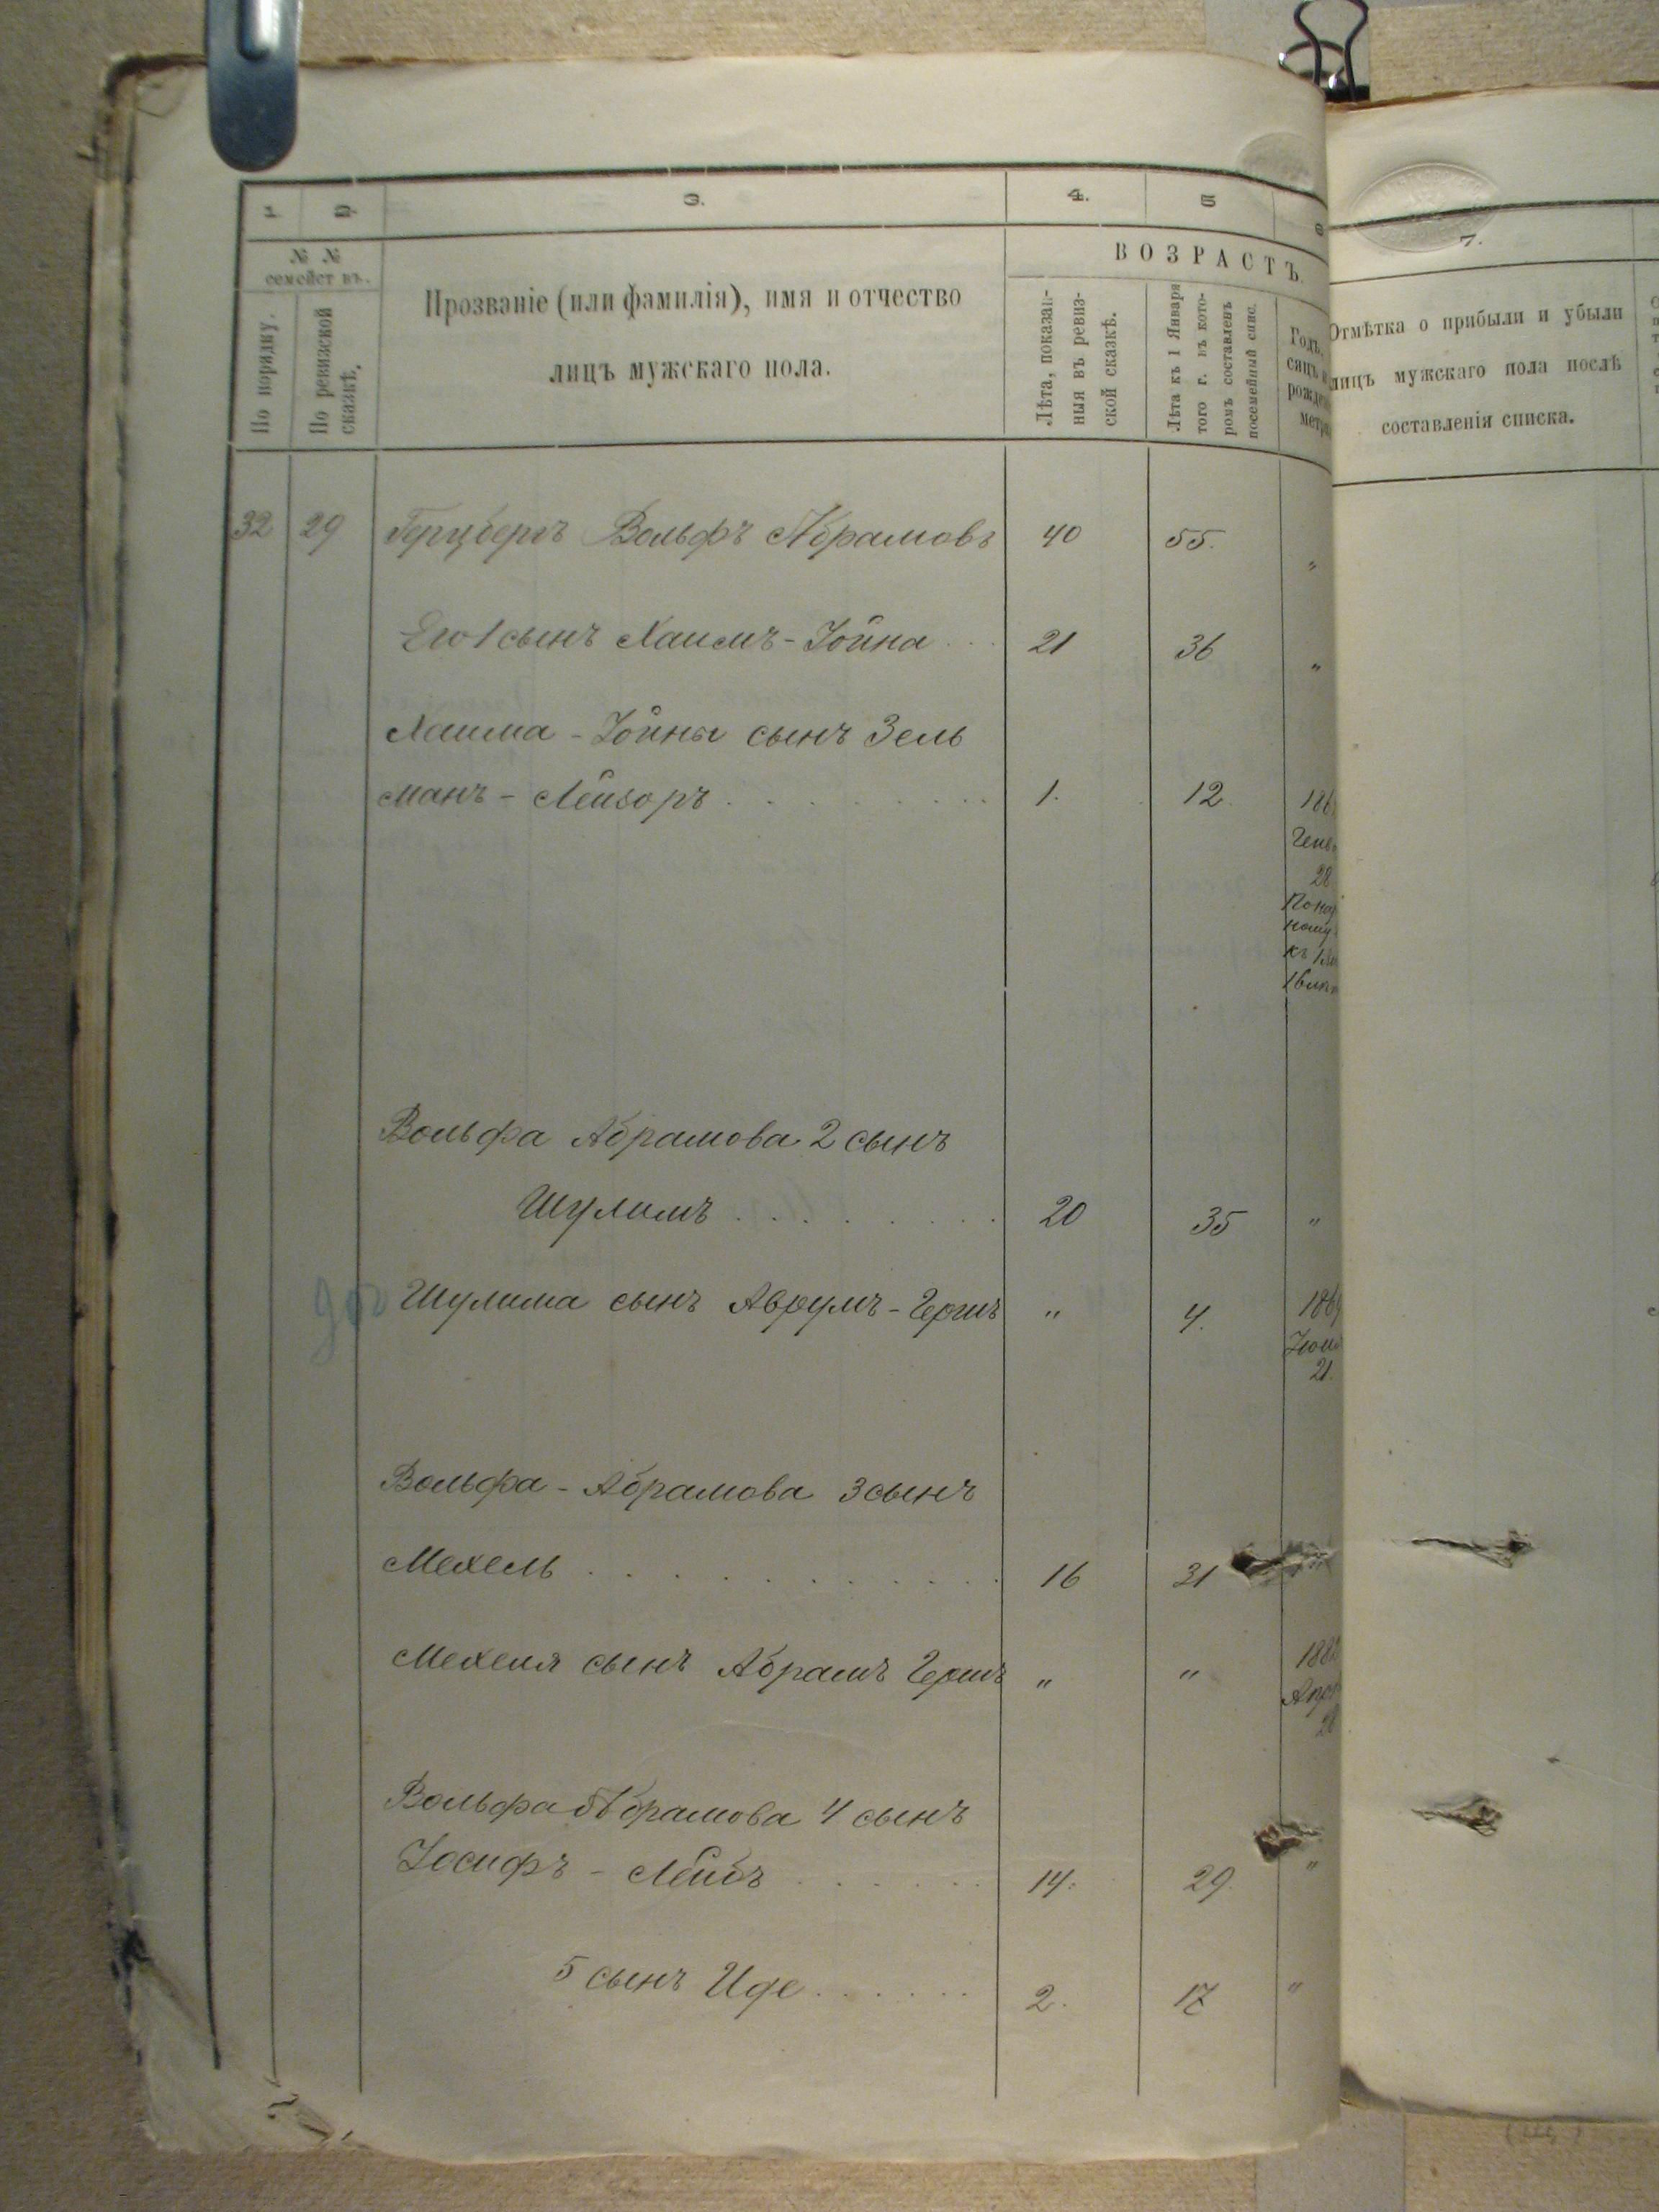 1. 2. 3. 4. 5 6
№ №
семействъ.
По порядку.
По ревизской
сказкѣ.
Прозваніе (или фамилія), имя и отчество
лицъ мужскаго пола.
ВОЗРАСТЪ.
Лѣта, показан-
ныя въ ревиз-
ской сказкѣ.
Лѣта къ 1 Января
того г. въ кото-
ромъ составленъ
посемейный спис.
Годъ,
сяцъ и
рожден
метри
7.
Отмѣтка о прибыли и убыли
лицъ мужскаго пола послѣ
составленія списка.
32 29 Герцбергъ Вольфъ Абрамовъ 40 55. "
Его 1 сынъ Хаимъ-Іойна . . . 21 36 "
Хаима-Іойны сынъ Зель
манъ-Лейзоръ . . . . . . . . . 1. 12. 186
Генв
28
къ
Вольфа Абрамова 2 сынъ
Шулимъ . . . . . . . . 20 35 "
Шулима сынъ Аврумъ-Гершъ " 4. 1869
Іюн
21.
Вольфа-Абрамова 3 сынъ
Мехель . . . . . . . . . . . 16 31 "
Мехеля сынъ Абрамъ Гершъ " " 1882
Апр
28
Вольфа Абрамова 4 сынъ
Іосифъ-Лейбъ . . . . . . 14. 29. "
5 сынъ Иде . . . . . . 2. 17 "